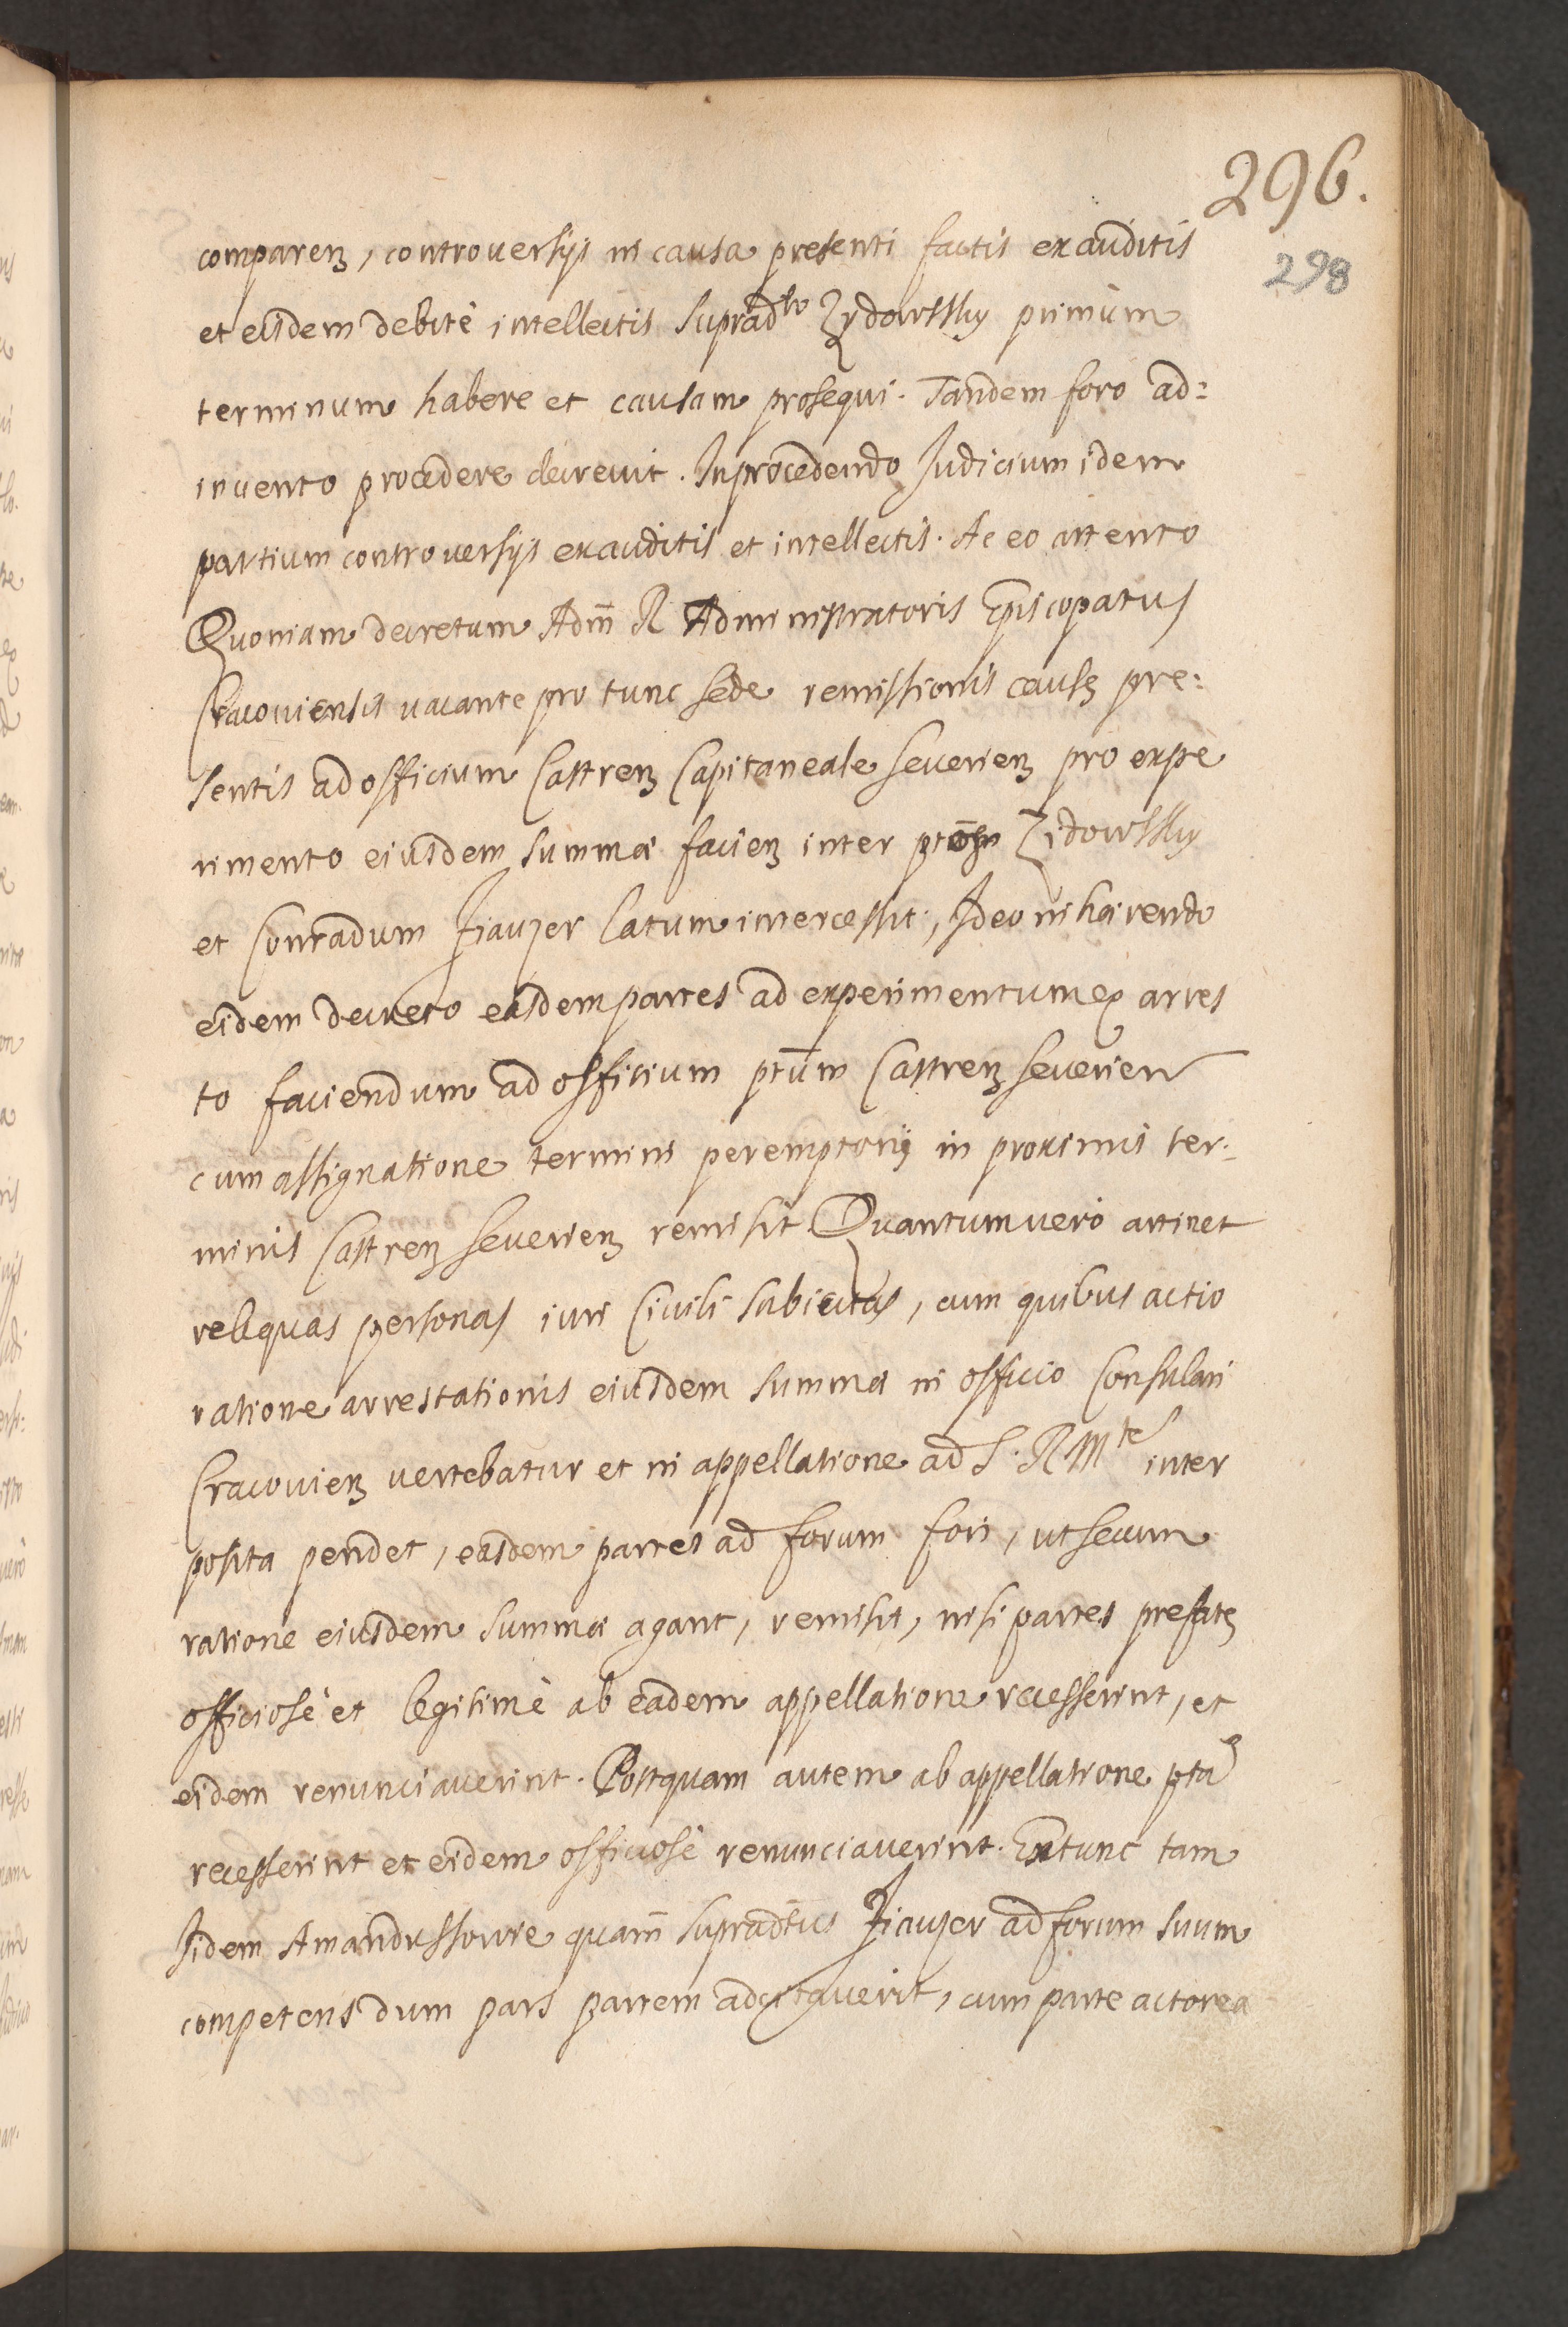 296.
298
comparenꝫ, controversijs in causa presenti factis exauditis
et eisdem debitè intellectis suprad^to Zydowsky primùm
terminum habere et causam prosequi. Tandem foro ad:
invento procedere decrevit. In procedendo Judicium idem
partium controversijs exauditis et intellectis. Ac eo attento
Quoniam decretum Adm̄ R Administratoris Ep̄iscopatus
Cracoviensis vacante pro tunc sede remissionis causę pre:
sentis ad officium Castrenꝫ Capitaneale Severienꝫ pro expe
rimento eiusdem summæ facienꝫ inter Zidowsky
et Conradum latum intercessit, Ideo inhærendo
eidem decreto easdem partes ad experimentum ex arres
to faciendum ad officium pt̄um Castrenꝫ Severien
cum assignatione termini peremptorij in proximis ter:
minis Castrenꝫ Severienꝫ remisit Quantum verò attinet
reliquas personas iuri Civili subiectas, cum quibus actio
ratione arrestationis eiusdem summæ in officio Consulari
Cracovienꝫ vertebatur et in appellatione ad S. R M^te inter
posita pendet, easdem partes ad forum fori, ut secum
ratione eiusdem summæ agant, remisit, nisi partes prefatę
officiosè et legitimè ab eadem appellatione recesserint, et
eidem renunciaverint. Postquam autem ab appellatione pta
recesserint et eidem officiosè renunciaverint. Extunc tam
Iidem quam̄ supradc̄tus ad forum suum
competens dum pars partem adcitaverit, cum parte actorea